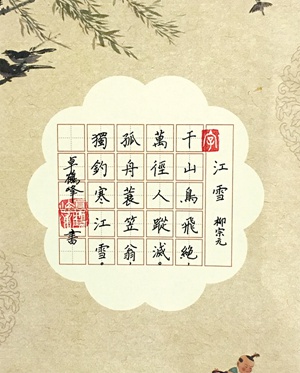 江雪 柳宗元
千山鳥飛絕，
萬徑人蹤滅。
孤舟蓑笠翁，
獨釣寒江雪。
卓峰書